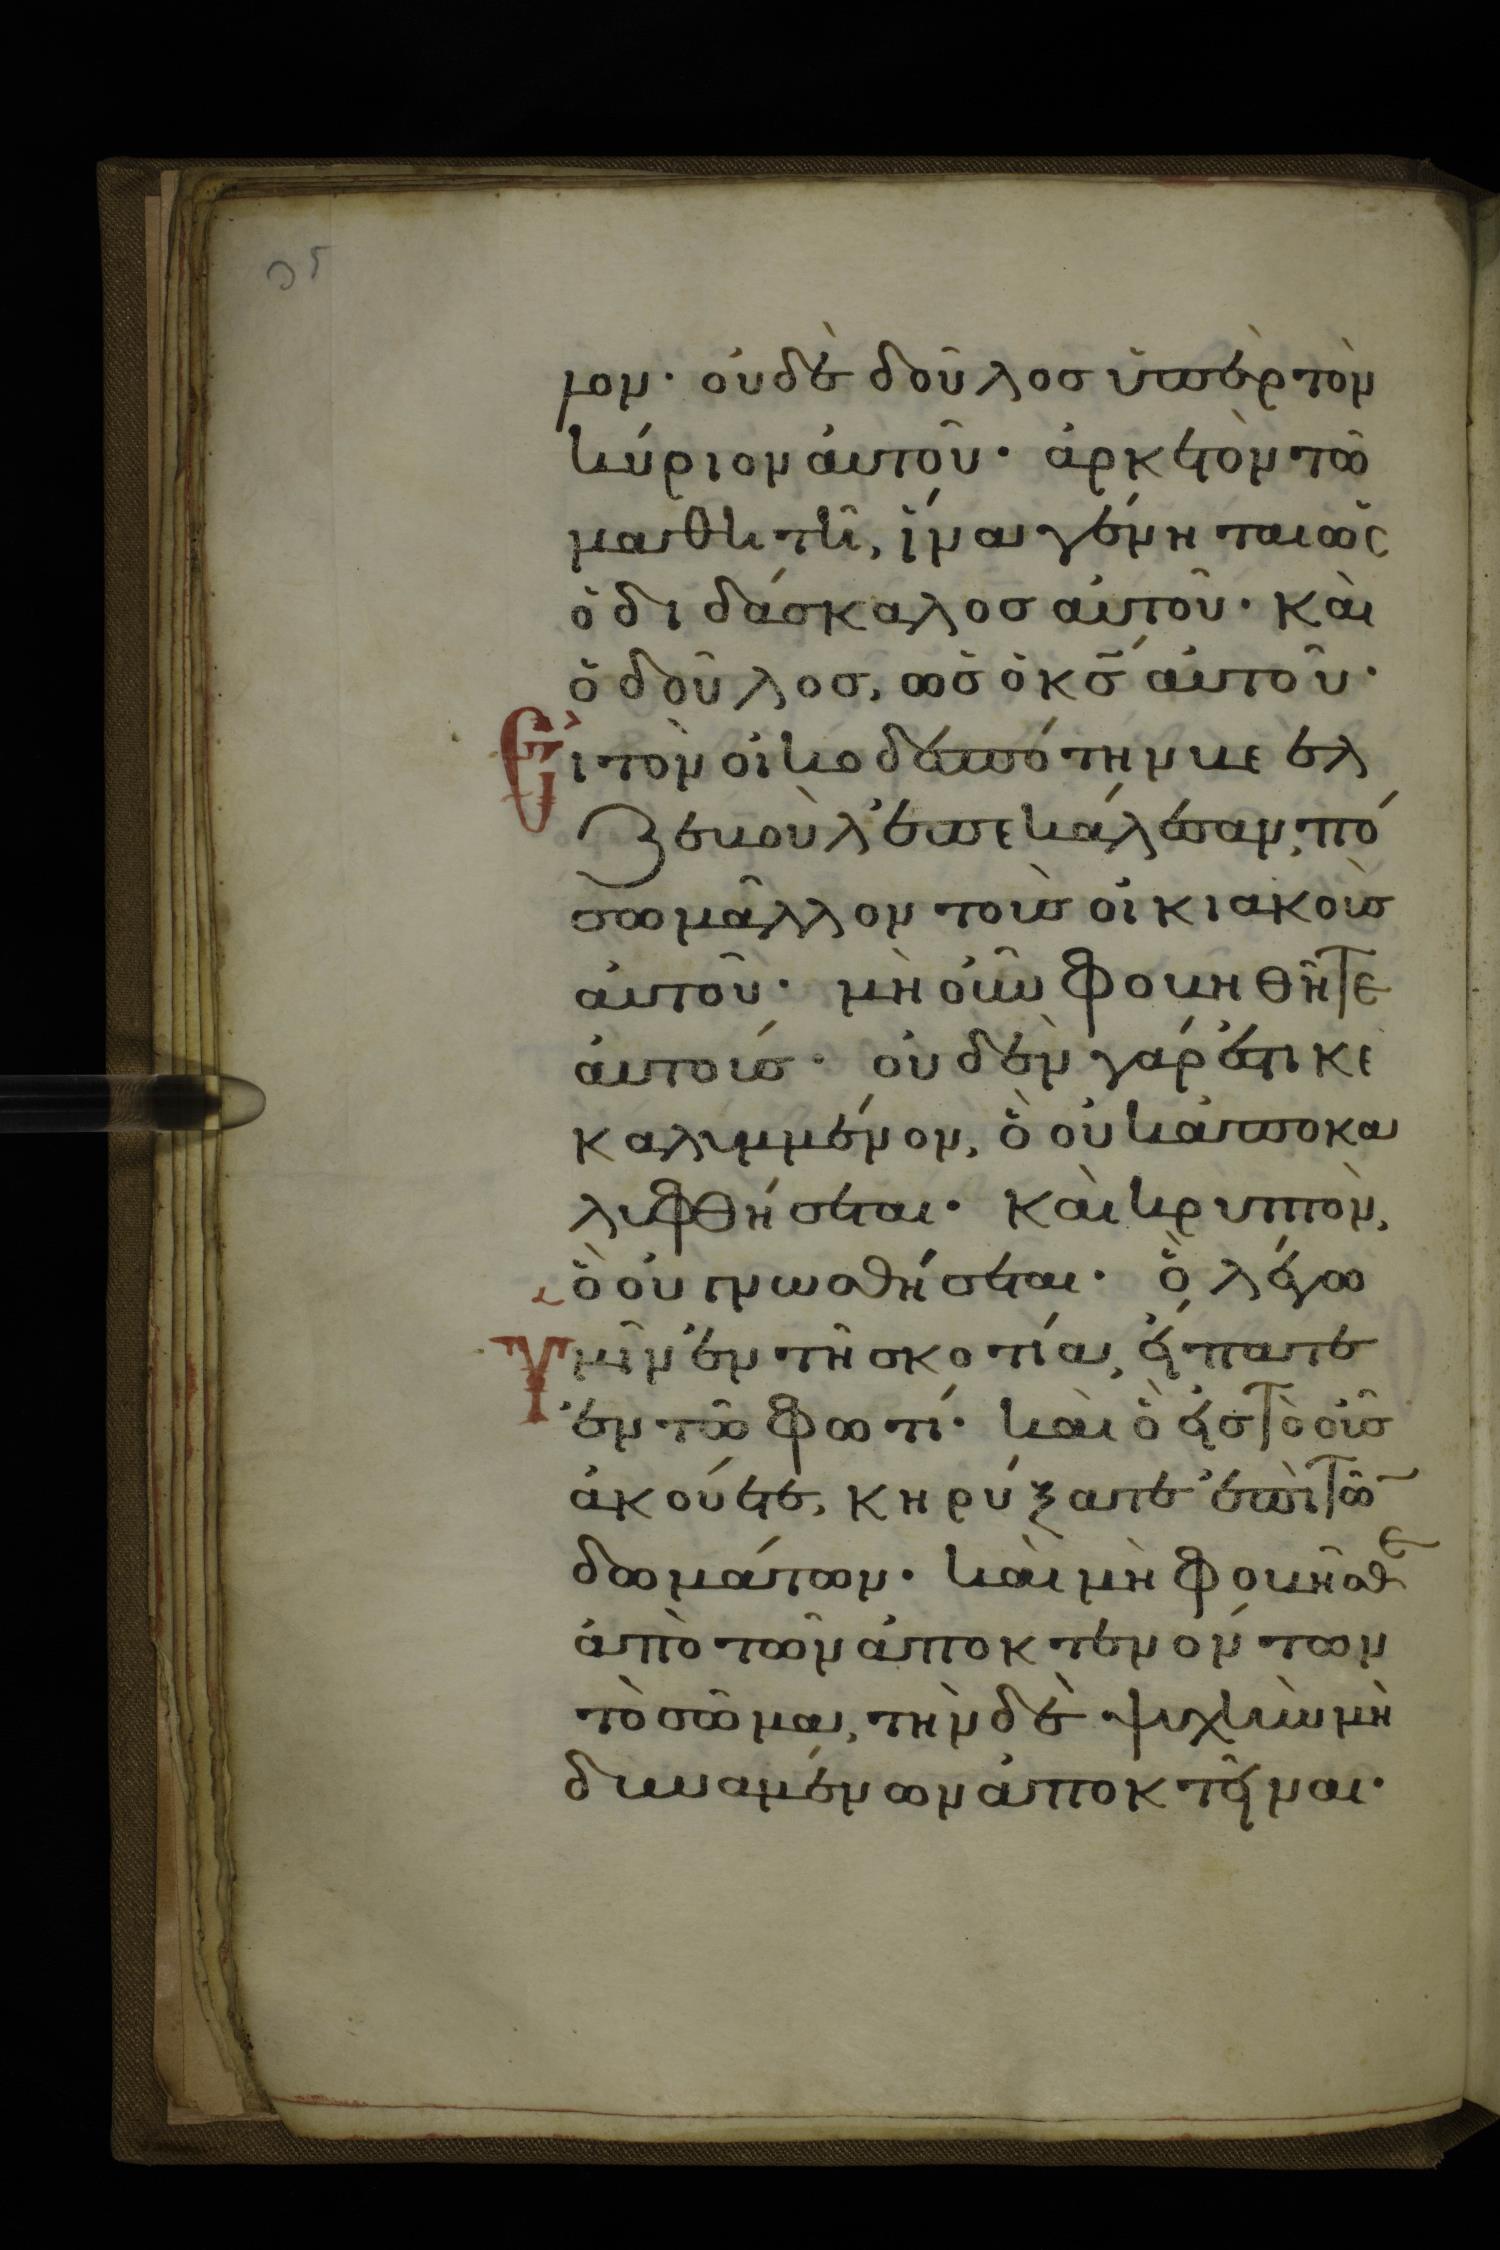 λον· οὐδὲ δοῦλος ὑπὲρ τὸν
κύριον αὐτοῦ· ἀρκετὸν τῶ
μαθητῆ, ἵνα γένηται ὡς
ὁ διδάσκαλος αὐτοῦ· καὶ
ὁ δοῦλος, ὡς ὁ κς̅ αὐτοῦ·
Εἰ τὸν οἰκοδεσπότην βεελ
ζεβοὺλ ἐπεκάλεσαν, πό
σω μᾶλλον τοὺς οἰκιακοὺς
αὐτοῦ· μὴ οὖν φοβηθῆτε
αὐτούς· οὐδὲν γάρ ἐστι κε
καλυμμένον, ὃ οὐκ ἀποκα
λυφθήσεται· καὶ κρυπτὸν,
ὃ οὐ γνωσθήσεται· ὃ λέγω
Ὑμῖν ἐν τῆ σκοτία, εἴπατε
ἐν τῶ φωτί· καὶ ὃ εἰς τὸ οὖς
ἀκούετε, κηρύξατε ἐπὶ τῶ
δωμάτων· καὶ μὴ φοβῆσθε
ἀπὸ τῶν ἀποκτενόντων
τὸ σῶμα, τὴν δὲ ψυχὴν μὴ
δυναμένων ἀποκτεῖναι·